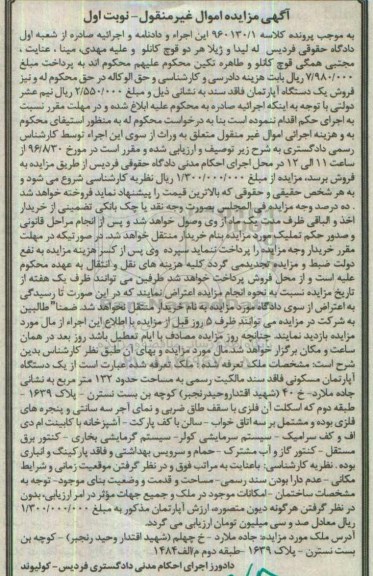 آگهی مزایده اموال غیر منقول - نوبت اول
به موجب پرونده کلاسه ۹۶۰۱۳۰/۱ این اجراء و دادنامه و اجرائیه صادره از شعبه اول
دادگاه حقوقی فردیس له لیدا و ژیلا هر دو قوچ کانلو و علیه مهدی، مینا، عنایت،
مجتبی همگی قوچ کانلو و طاهره تکین محکوم علیهم محکوم اند به پرداخت مبلغ
۷/۹۸۰/۰۰۰ ریال بابت هزینه دادرسی و کارشناسی و حق الوکاله در حق محکوم له و نیز
فروش یک دستگاه آپارتمان فاقد سند به نشانی ذیل و مبلغ ۲/۵۵۰/۰۰۰ ریال نیم عشر
دولتی با توجه به اینکه اجرائیه صادره به محکوم علیه ابلاغ شده و در مهلت مقرر نسبت
به اجرای حکم اقدام ننموده است بنا به درخواست محکوم له به منظور استیفای محکوم
به و هزینه اجرائی اموال غیر منقول متعلق به وراث از سوی این اجراء توسط کارشناس
رسمی دادگستری به شرح زیر توصیف و ارزیابی شده و مقرر است در مورخ ۹۶/۸/۳۰ از
ساعت ۱۱ الی ۱۲ در محل اجرای احکام مدنی دادگاه حقوقی فردیس از طریق مزایده به
فروش برسد، مزایده از مبلغ ۱/۳۰۰/۰۰۰/۰۰۰ ریال نظریه کارشناسی شروع می شود و
به هر شخص حقیقی و حقوقی که بالاترین قیمت را پیشنهاد نماید فروخته خواهد شد
. ده درصد وجه مزایده فی المجلس بصورت وجه نقد یا چک بانکی تضمینی از خریدار
اخذ و الباقی ظرف مدت یک ماه از وی وصول خواهد شد و پس از انجام مراحل قانونی
و صدور حکم تملیک مورد مزایده بنام خریدار منتقل خواهد شد. در صورتیکه در مهلت
مقرر خریدار وجه مزایده را پرداخت ننماید سپرده وی پس از کسر هزینه مزایده به نفع
دولت ضبط و مزایده تجدید می گردد کلیه هزینه های نقل و انتقال به عهده محکوم
علیه است و از محل فروش پرداخت خواهد شد. طرفین می توانند ظرف یک هفته از
تاریخ مزایده نسبت به نحوه انجام مزایده اعتراض نمایند که در این صورت تا رسیدگی
به اعتراض از سوی دادگاه مورد مزایده به نام خریدار منتقل نخواهد شد. ضمنا" طالبین
به شرکت در مزایده می توانند ظرف ۵ روز قبل از مزایده با اطلاع این اجراء از مال مورد
مزایده بازدید نمایند. چنانچه روز مزایده مصادف با ایام تعطیل باشد روز بعد در همان
ساعت و مکان برگزار خواهد شد. مال مورد مزایده و بهای آن طبق نظر کارشناس بدین
شرح است: مشخصات ملک تعرفه شده: ملک تعرفه شده عبارت است از یک دستگاه
آپارتمان مسکونی فاقد سند مالکیت رسمی به مساحت حدود ۱۳۲ متر مربع به نشانی
جاده ملارد - خ ۴۰ (شهید اقتدار وحید رنجبر) کوچه بن بست نسترن - پلاک ۱۶۳۹
طبقه دوم که اسکلت آن فلزی با سقف طاق ضربی و نمای آجر سه سانتی و پنجره های
فلزی بوده و مشتمل بر سه اتاق خواب - سالن با کف پارکت - آشپزخانه با کابینت ام دی
اف و کف سرامیک - سیستم سرمایشی کولر - سیستم گرمایشی بخاری - کنتور برق
مستقل - کنتور گاز و آب مشترک - حمام و سرویس بهداشتی و فاقد پارکینگ و انباری
بوده . نظریه کارشناسی: با عنایت به مراتب فوق و در نظر گرفتن موقعیت زمانی و شرایط
مکانی - عدم دارا بودن سند رسمی - مساحت و قدمت و وضعیت بنای موجود - توجه به
مشخصات ساختمان - امکانات موجود در ملک و جمیع جهات مؤثر در امر ارزیابی، بدون
در نظر گرفتن هرگونه دیون متصوره، ارزش آپارتمان مذکور به مبلغ ۱/۳۰۰/۰۰۰/۰۰۰
ریال معادل صد و سی میلیون تومان ارزیابی می گردد.
آدرس ملک مورد مزایده: جاده ملارد - خ چهلم (شهید اقتدار وحید رنجبر) - کوچه بن
بست نسترن - پلاک ۱۶۳۹ - طبقه دوم م/الف۱۴۸۴
دادورز اجرای احکام مدنی دادگستری فردیس - کولیوند